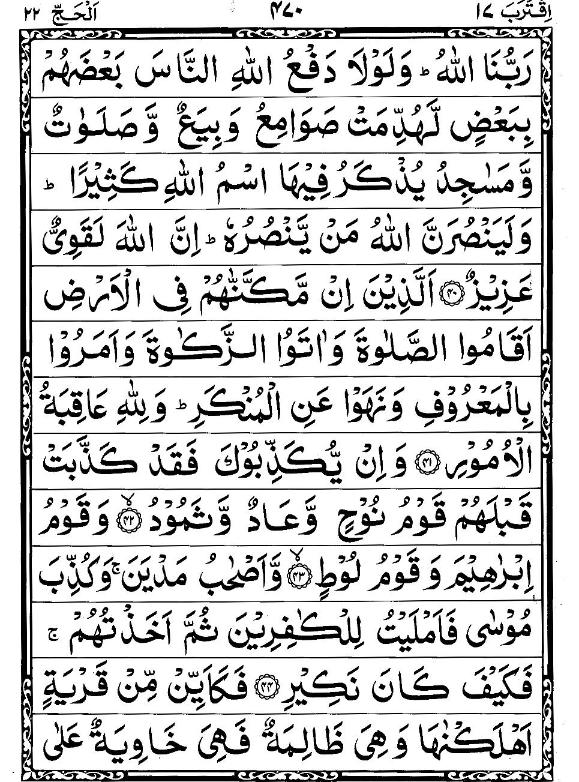 اِقْتَرَبَ ١٧ ٤٧٠ اَلْحَجّ ٢٢
رَبُّنَا اللّٰهُ ؕ وَلَوْلَا دَفْعُ اللّٰهِ النَّاسَ بَعْضَهُمْ
بِبَعْضٍ لَّهُدِّمَتْ صَوَامِعُ وَبِيَعٌ وَّصَلَوٰتٌ
وَّمَسٰجِدُ يُذْكَرُ فِيْهَا اسْمُ اللّٰهِ كَثِيْرًا ؕ
وَلَيَنْصُرَنَّ اللّٰهُ مَنْ يَّنْصُرُهٗ ؕ اِنَّ اللّٰهَ لَقَوِيٌّ
عَزِيْزٌ ﴿٤٠﴾ اَلَّذِيْنَ اِنْ مَّكَّنّٰهُمْ فِى الْاَرْضِ
اَقَامُوا الصَّلٰوةَ وَاٰتَوُا الزَّكٰوةَ وَاَمَرُوْا
بِالْمَعْرُوْفِ وَنَهَوْا عَنِ الْمُنْكَرِ ؕ وَلِلّٰهِ عَاقِبَةُ
الْاُمُوْرِ ﴿٤١﴾ وَاِنْ يُّكَذِّبُوْكَ فَقَدْ كَذَّبَتْ
قَبْلَهُمْ قَوْمُ نُوْحٍ وَّعَادٌ وَّثَمُوْدُ ﴿٤٢﴾ۙ وَقَوْمُ
اِبْرٰهِيْمَ وَقَوْمُ لُوْطٍ ﴿٤٣﴾ۙ وَّاَصْحٰبُ مَدْيَنَ ۚ وَكُذِّبَ
مُوْسٰى فَاَمْلَيْتُ لِلْكٰفِرِيْنَ ثُمَّ اَخَذْتُهُمْ ۚ
فَكَيْفَ كَانَ نَكِيْرِ ﴿٤٤﴾ فَكَاَيِّنْ مِّنْ قَرْيَةٍ
اَهْلَكْنٰهَا وَهِىَ ظَالِمَةٌ فَهِىَ خَاوِيَةٌ عَلٰى